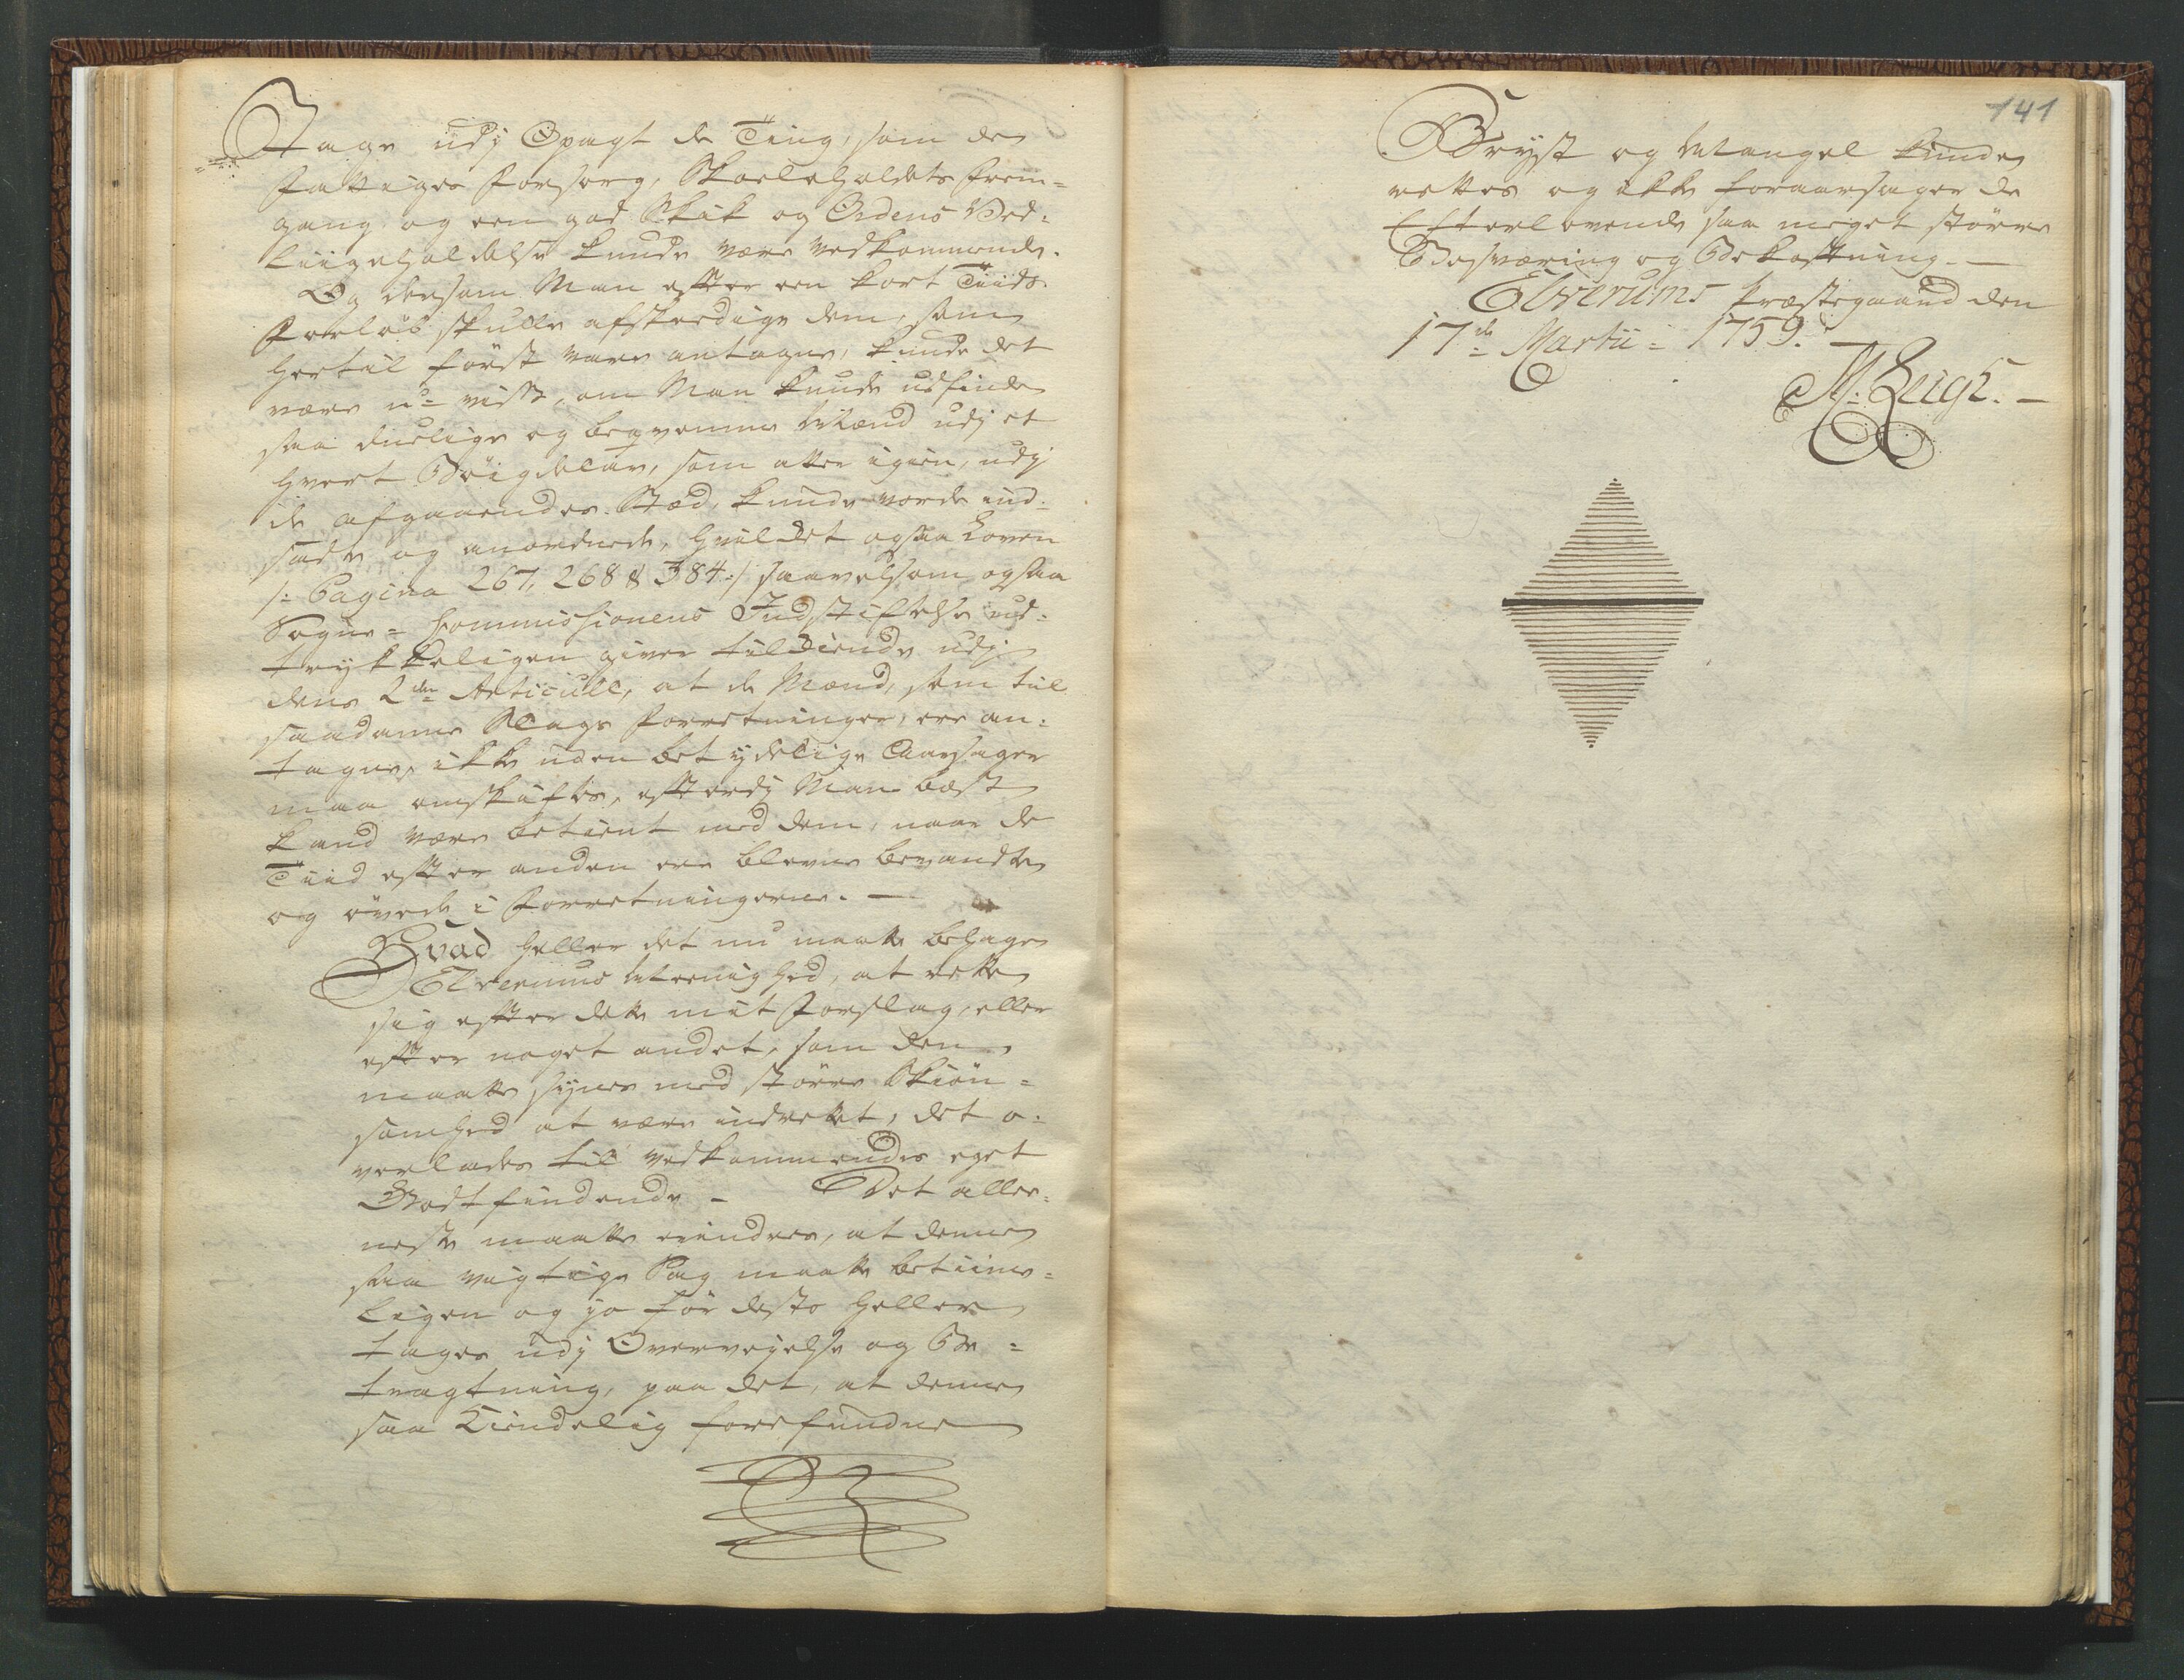 Tage udj Opagt de Ting, som de
Fattiges Forsorg, Skoleholdets Frem=
gang og een god Skik og Ordens Ved=
liigeholdelse kunde være vedkommende.
Og dersom Man efter een kort Tiids
Forløb skulle afskedige dem, som
hertil først vare antagne, kunde det
være u=vist, om Man kunde udfinde
saa duelige og beqvemme Mænd udj et
hvert Bøigdelav, som atter igien, udj
de afgaaendes Stæd, kunde vorde ind=
satte og anordnede, hvilket ogsaa Loven
/: Pagina 267, 268 & 384 :/ saavelsom ogsaa
Sogne=Commissionens Indstiftelse ud=
trykkeligen giver tilkiende udj
dens 2den Articull, at de Mænd, som til
saadanne Slags Forretninger, ere an=
tagne, ikke uden betydelige Aarsager
maa omskiftes, efterdj Man bæst
kand være betient med dem, naar de
Tiid efter anden ere blevne bevandte
og øvede i Forretningerne. —
Hvad heller det nu maatte behage
Elverums Meenighed, at rette
sig efter dette mit Forslag, eller
efter noget andet, som den
maatte synes med større Skiøn=
somhed at være indrettet, det o=
verlades til vedkommendes eget
Godtfindende – Det aller=
neste maatte erindres, at denne
saa vigtige Sag maatte betiime=
ligen og jo før desto heller
tages udj Overveyelse og Be=
tragtning, paa det, at denne
saa kiendelig forefundne
141
Bryst og Mangel kunde
rettes og ikke foraarsager de
Efterlevende saa meget større
Besværing og Bekostning. —
Elverums Præstegaard den
17de Martii = 1759.
M: Leigh. –